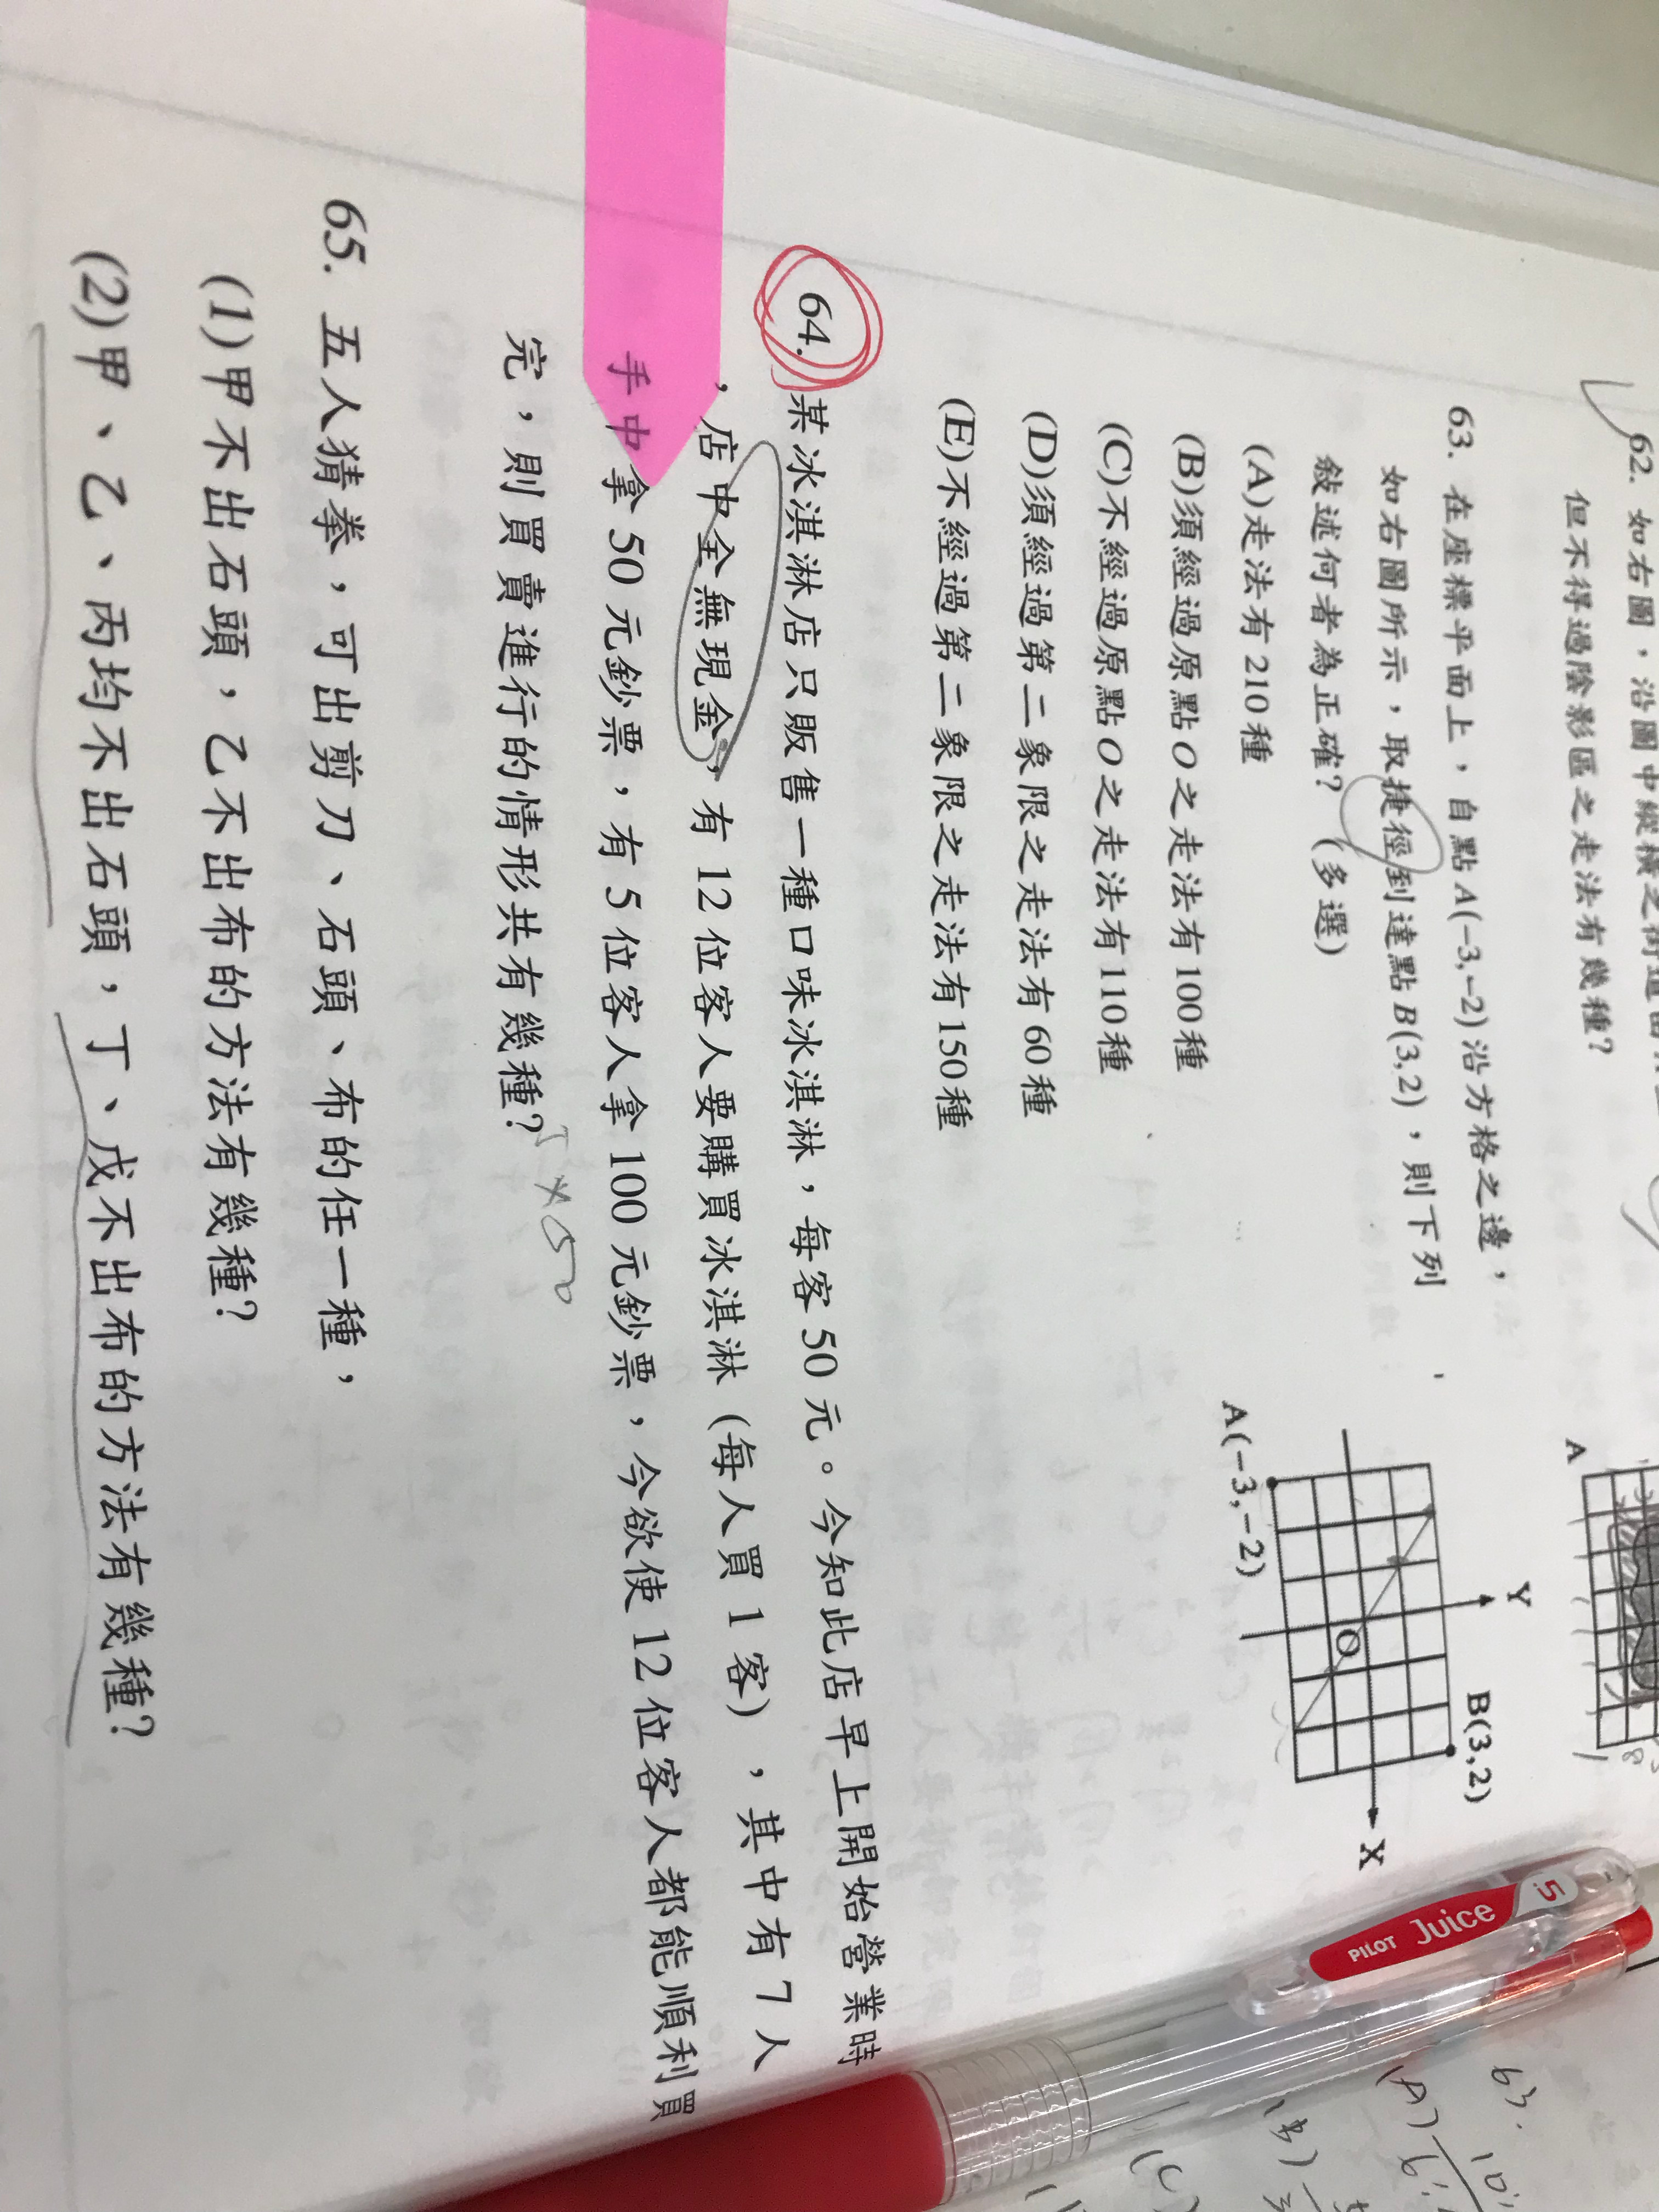 62. 如右圖，沿圖中縱橫之街道由
但不得過陰影區之走法有幾種？
A
63. 在座標平面上，自點A(-3,-2)沿方格之邊，
如右圖所示，取捷徑到達點B(3,2)，則下列
敘述何者為正確？（多選）
(A)走法有210種
(B)須經過原點O之走法有100種
(C)不經過原點O之走法有110種
(D)須經過第二象限之走法有60種
(E)不經過第二象限之走法有150種
Y
B(3,2)
O
X
A(-3,-2)
64. 某冰淇淋店只販售一種口味冰淇淋，每客50元。今知此店早上開始營業時
，店中全無現金，有12位客人要購買冰淇淋（每人買1客），其中有7人
手中拿50元鈔票，有5位客人拿100元鈔票，今欲使12位客人都能順利買
完，則買賣進行的情形共有幾種？
65. 五人猜拳，可出剪刀、石頭、布的任一種，
(1)甲不出石頭，乙不出布的方法有幾種？
(2)甲、乙、丙均不出石頭，丁、戊不出布的方法有幾種？
PILOT Juice 05
63.
(A)
(B)
(C)